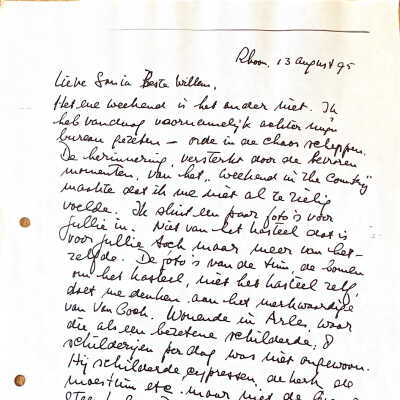 Rhoon, 13 augustus 95
Lieve Sonia Beste Willem,
Het ene weekend is het andere niet. Ik
heb vandaag voornamelijk achter mijn
bureau gezeten – orde in de chaos scheppen.
De herinnering, versterkt door de bevroren
momenten, van het "weekend in the Country"
maakte dat ik me niet al te zielig
voelde. Ik sluit een paar foto's voor
jullie in. Niet van het kasteel dat is
voor jullie toch maar meer van het-
zelfde. De foto's van de tuin, de bomen
om het kasteel, niet het kasteel zelf,
doet me denken aan het merkwaardige
van Van Gogh. Wonende in Arles, waar
die als een bezetene schilderde, 8
schilderijen per dag was niet ongewoon.
Hij schilderde cypressen, de kerk de
moestuin etc. maar niet de